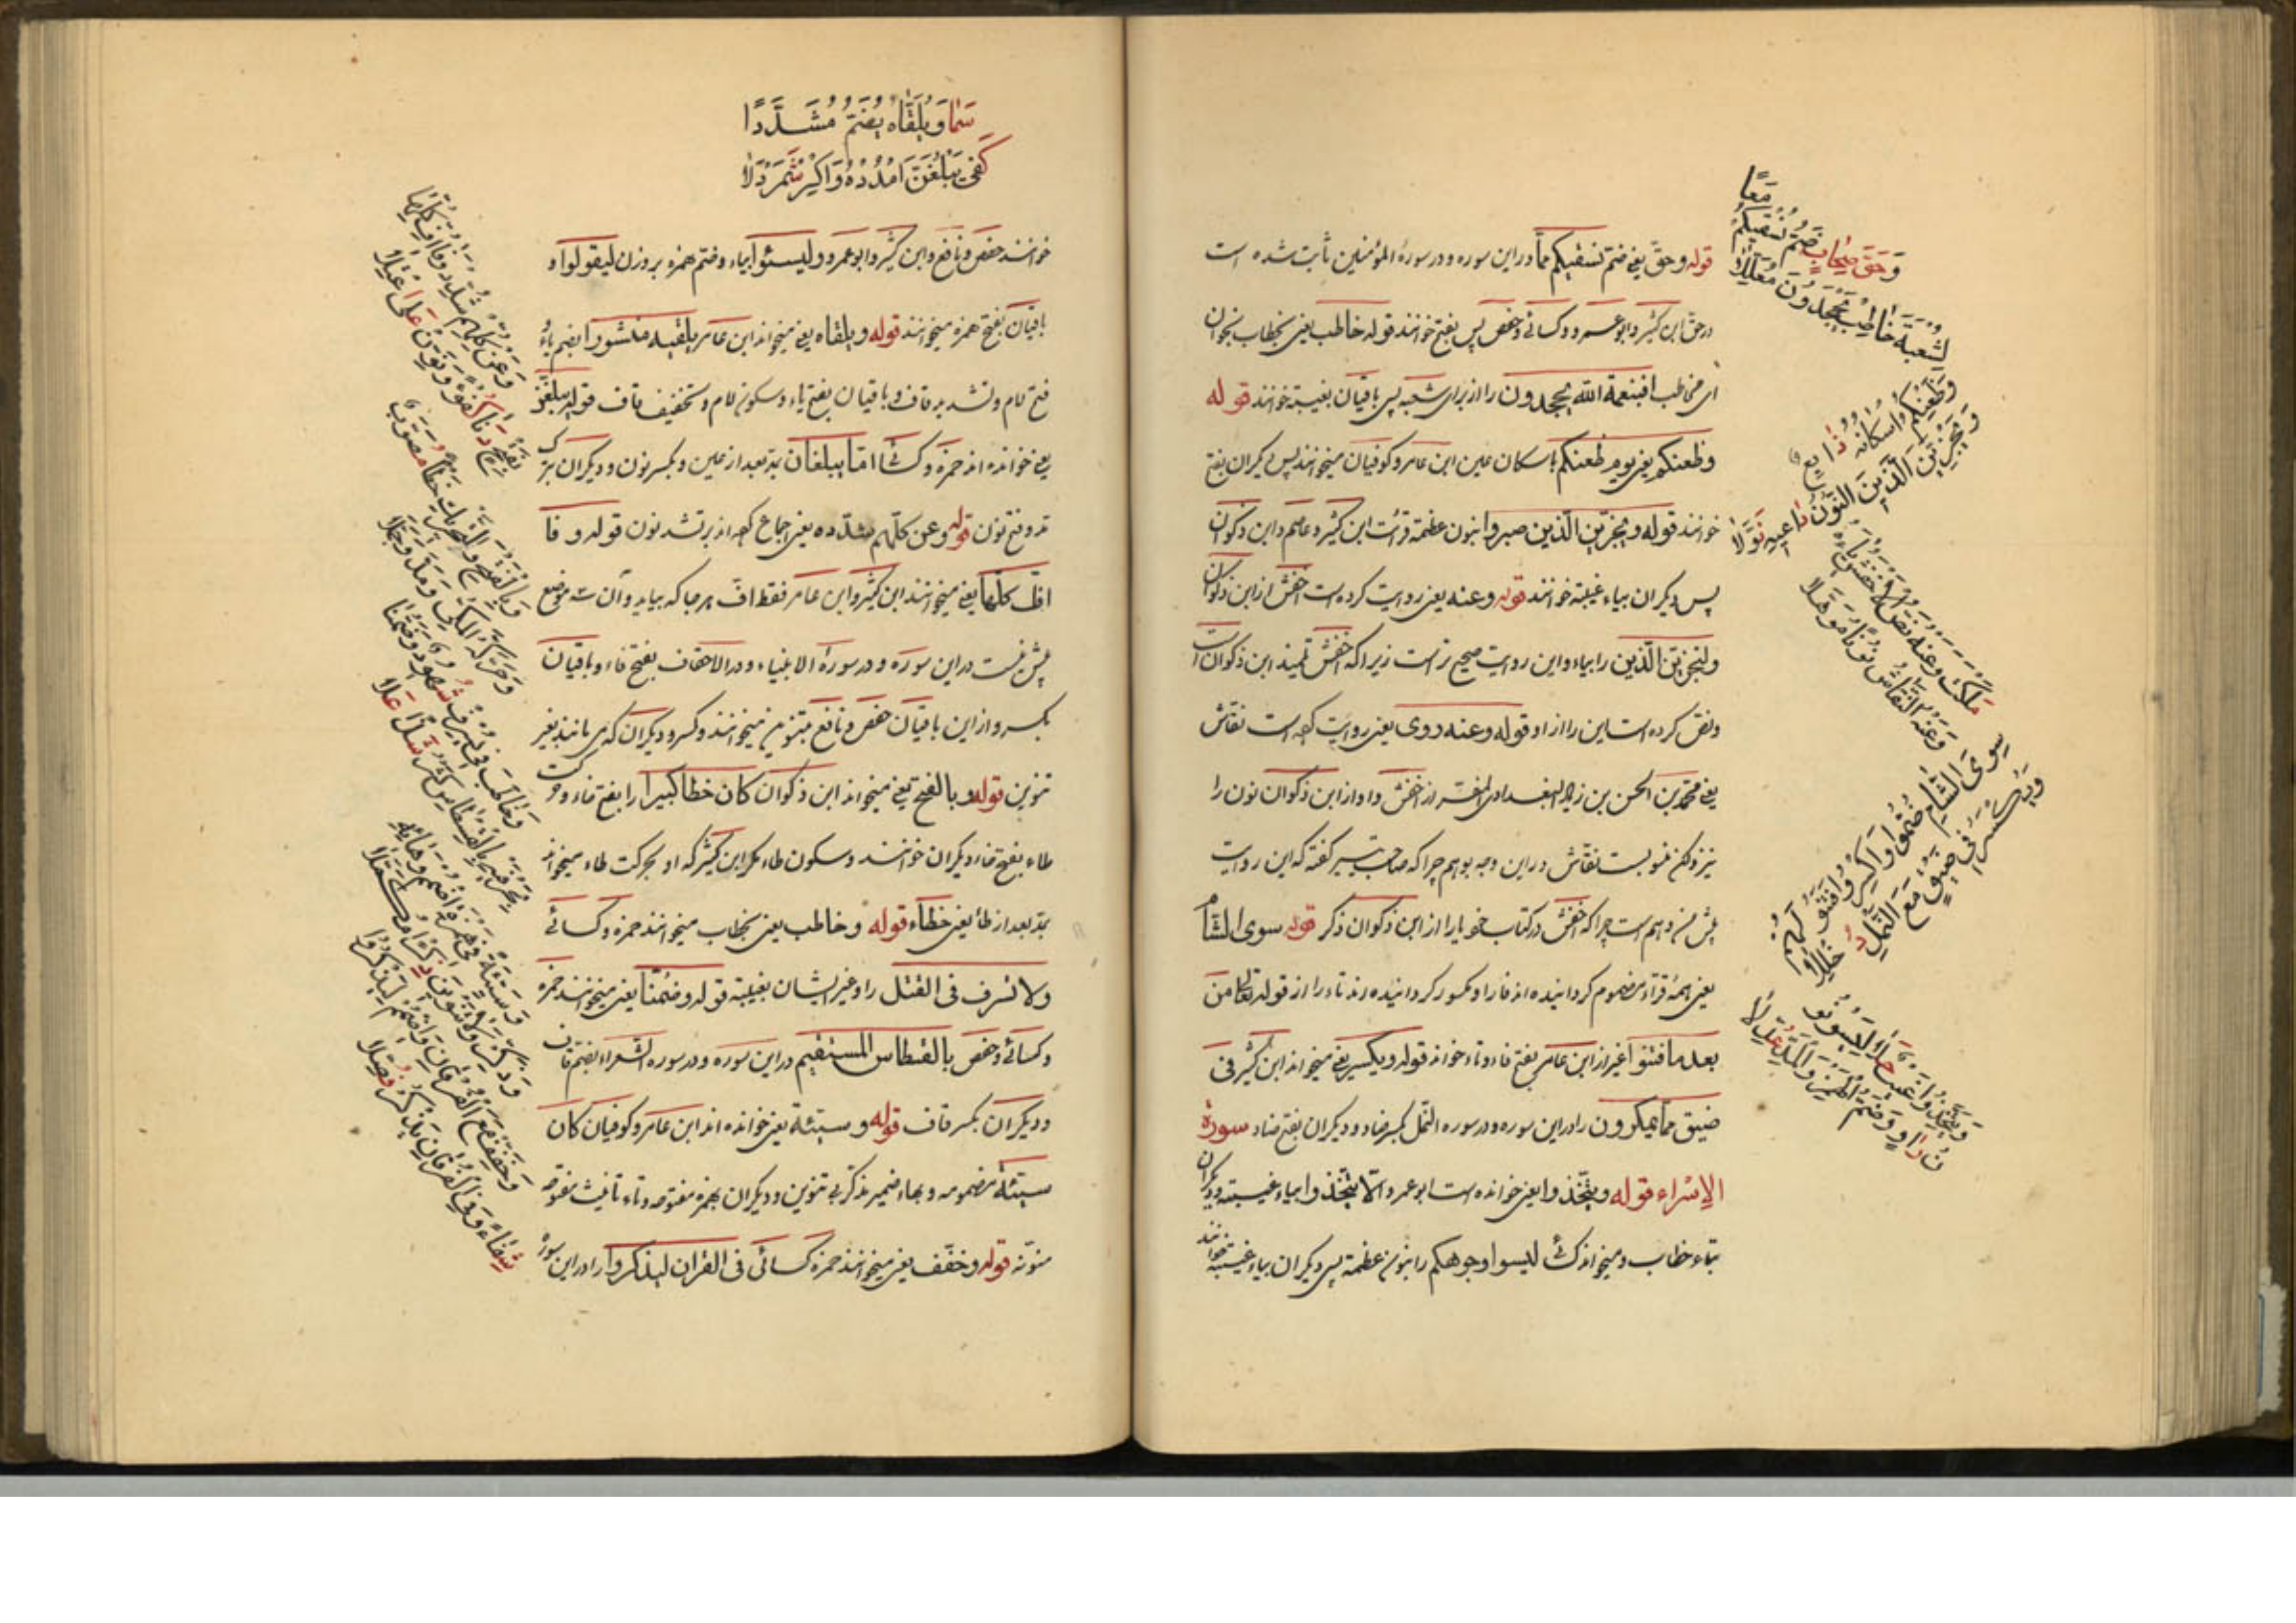 وَحَقَّ صِحَابٍ ضَمُّ نُسْقِيكُمُ مَعًا
لِشُعْبَةَ خَاطِبْ يَجْحَدُونَ مُعَلَّلَا
وَظَعْنِكُمُ إِسْكَانُهُ ذَائِعٌ
وَنَجْزِيَنَّ الَّذِينَ النُّونُ دَاعِيهِ نُوِّلَا
مَلَكْتَ وَعَنْهُ نَصَّ الْأَخْفَشُ يَاءَهُ
وَعَنْهُ النَّقَّاشُ نُونًا مُوَهَّلَا
سِوَى الشَّامِ ضُمُّوا وَاكْسِرُوا فَتَنُوا لَهُمْ
وَيُكْسَرُ فِي ضَيْقٍ مَعَ النَّمْلِ دُخْلُلَا
وَيَتَّخِذُوا غَيْبٌ حَلَا لِيَسُوءَ نُو
نُ رَاوٍ وَضَمُّ الْهَمْزِ وَالْمَدِّ عُدِّلَا
قوله وحق یعنی ضم نسقیکم معا در این سوره و در سورهٔ المؤمنین ثابت شده است
در حق ابن کثیر و ابو عمرو و کسائی و حفص پس بفتح خوانند قوله خاطب یعنی بخطاب بخوان
ای مخاطب افبنعمة الله یجحدون را از برای شعبه پس باقیان بغیبة خوانند قوله
وظعنکم یعنی یوم ظعنکم باسکان عین ابن عامر و کوفیان میخوانند پس دیگران بفتح
خوانند قوله ونجزین الذین صبروا بنون عظمة قرائت ابن کثیر و عاصم و ابن ذکوان
پس دیگران بیاء غیبة خوانند قوله وعنه یعنی روایت کرده است اخفش از ابن ذکوان
ولنجزین الذین را بیاء و این روایت صحیح تر است زیرا که اخفش تلمیذ ابن ذکوان است
ونص کرده است این را از او قوله وعنه روی یعنی روایت کرده است نقاش
یعنی محمد بن الحسن بن زیاد البغدادی المفسر از اخفش و او از ابن ذکوان نون را
نیز ولکن منسوبست نقاش در این وجه بوهم چرا که صاحب تیسیر گفته که این روایت
پیش من وهم است چرا که اخفش در کتاب خود یا را از ابن ذکوان ذکر قوله سوی الشام
یعنی همهٔ قراء مضموم گردانیده اند فا را و مکسور گردانیده اند تاء را از قوله تعالی من
بعد ما فتنوا غیر از ابن عامر بفتح فاء و تاء خواند قوله ویکسر یعنی میخواند ابن کثیر فی
ضیق مما یمکرون را در این سوره و در سوره النمل بکسر ضاد و دیگران بفتح ضاد سورة
الإسراء قوله ویتخذوا یعنی خوانده است ابو عمرو الا یتخذوا بیاء غیبة و دیگران
بتاء خطاب و میخواند کسائی لیسوا وجوهکم را بنون عظمة پس دیگران بیاء غیبة خوانند
سَمَا وَيُلَقَّاهُ يُضَمُّ مُشَدَّدًا
كَفَى يَبْلُغَنَّ امْدُدْهُ وَاكْسِرْ شَمَرْدَلَا
وَعَنْ كُلِّهِمْ شَدِّدْ وَفَا أُفِّ كُلِّهَا
بِفَتْحٍ دَنَا كُفْؤًا وَنَوِّنْ عَلَى اعْتِلَا
وَبِالْفَتْحِ وَالتَّحْرِيكِ خِطْأً مُصَوَّبٌ
وَحَرَّكَهُ الْمَكِّي وَمَدَّ وَجَمَّلَا
وَخَاطَبَ فِي يُسْرِفْ شُهُودٌ وَضَمُّنَا
بِحَرْفَيْهِ بِالْقِسْطَاسِ كَسْرُ شَذٍ عَلَا
وَسَيِّئَةً فِي هَمْزِهِ اضْمُمْ وَهَائِهِ
وَذَكِّرْ وَلَا تَنْوِينَ ذِكْرًا مُكَمَّلَا
وَخَفِّفْ مَعَ الْفُرْقَانِ وَاضْمُمْ لِيَذْكُرُوا
شِفَاءً وَفِي الْفُرْقَانِ يَذْكُرُ فُصِّلَا
خوانند حفص و نافع و ابن کثیر و ابو عمرو ولیسئوا بیاء و ضم همزه بروزن لیقولوا و
باقیان بفتح همزه میخوانند قوله ویلقاه یعنی میخواند ابن عامر یلقیه منشورا بضم یاء و
فتح لام و تشدید قاف و باقیان بفتح یاء و سکون لام و تخفیف قاف قوله یبلغن
یعنی خوانده اند حمزه و کسائی اما یبلغان بمد بعد از غین و بکسر نون و دیگران بترک
مد و فتح نون قوله وعن کلهم مشدده یعنی اجماع کرده اند بر تشدید نون قوله وفا
اف کلها یعنی میخوانند ابن کثیر و ابن عامر فقط اف هر جا که بیاید و آن سه موضع
بیش نیست در این سوره و در سورهٔ الانبیاء و در الاحقاف بفتح فاء و باقیان
بکسر و از این باقیان حفص و نافع بتنوین میخوانند و کسر و دیگران که می مانند بغیر
تنوین قوله وبالفتح یعنی میخواند ابن ذکوان کان خطا کبیرا را بفتح خاء و حرکت
طاء بفتح خاء دیگران خوانند و سکون طاء مگر ابن کثیر که او بحرکت طاء میخواند
بمد بعد از طا یعنی خطاء قوله وخاطب یعنی بخطاب میخوانند حمزه و کسائی
ولا تسرف فی القتل را و غیر ایشان بغیبة قوله وضمنا یعنی میخوانند حمزه
و کسائی و حفص بالقسطاس المستقیم در این سوره و در سوره الشعراء بضم قاف
و دیگران بکسر قاف قوله وسیئة یعنی خوانده اند ابن عامر و کوفیان کان
سیئة مضمومه و بهاء ضمیر مذکر بی تنوین و دیگران بهمزه مفتوحه و تاء تانیث مفتوحه
منونه قوله وخفف یعنی میخوانند حمزه کسائی فی القران لیذکروا را در این سوره